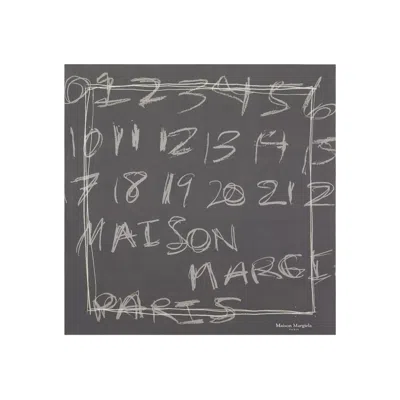 0 1 2 3 4 5 6
10 11 12 13 14 15
17 18 19 20 21 2
MAISON
MARGI
PARIS
Maison Margiela